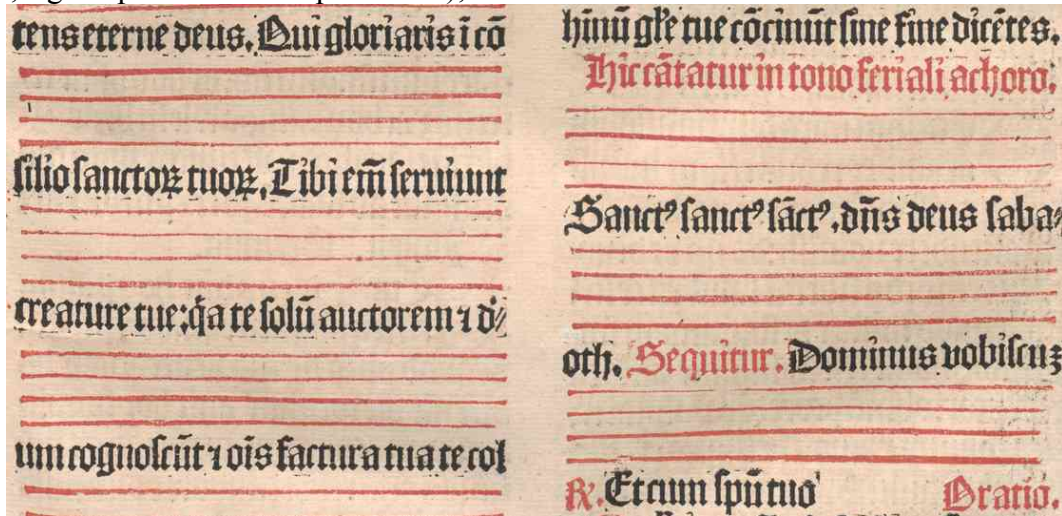 tens eterne deus. Qui gloriaris ī cō
silio sanctoꝝ tuoꝝ. Tibi em̄ seruiunt
creature tue: q̄a te solū auctorem ⁊ dꝰ//
um cognoscūt ⁊ oīs factura tua te col
hīnū gl̄e tue cōcinūt sine fine dicētes.
Hic cātatur in tono feriali a choro.
Sanctꝰ sanctꝰ sāctꝰ. dn̄s deus saba⸗
oth. Sequitur. Dominus vobiscuꝫ
℟. Et cum spū tuo Oratio.